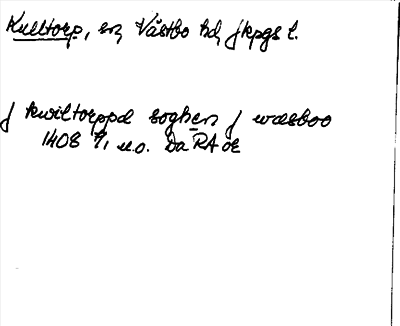 Kulltorp, sn, Västbo hd, Jkpgs l.
j kwiltorppa soghen j wæsboo
1408 9/1 u.o. Da RA or